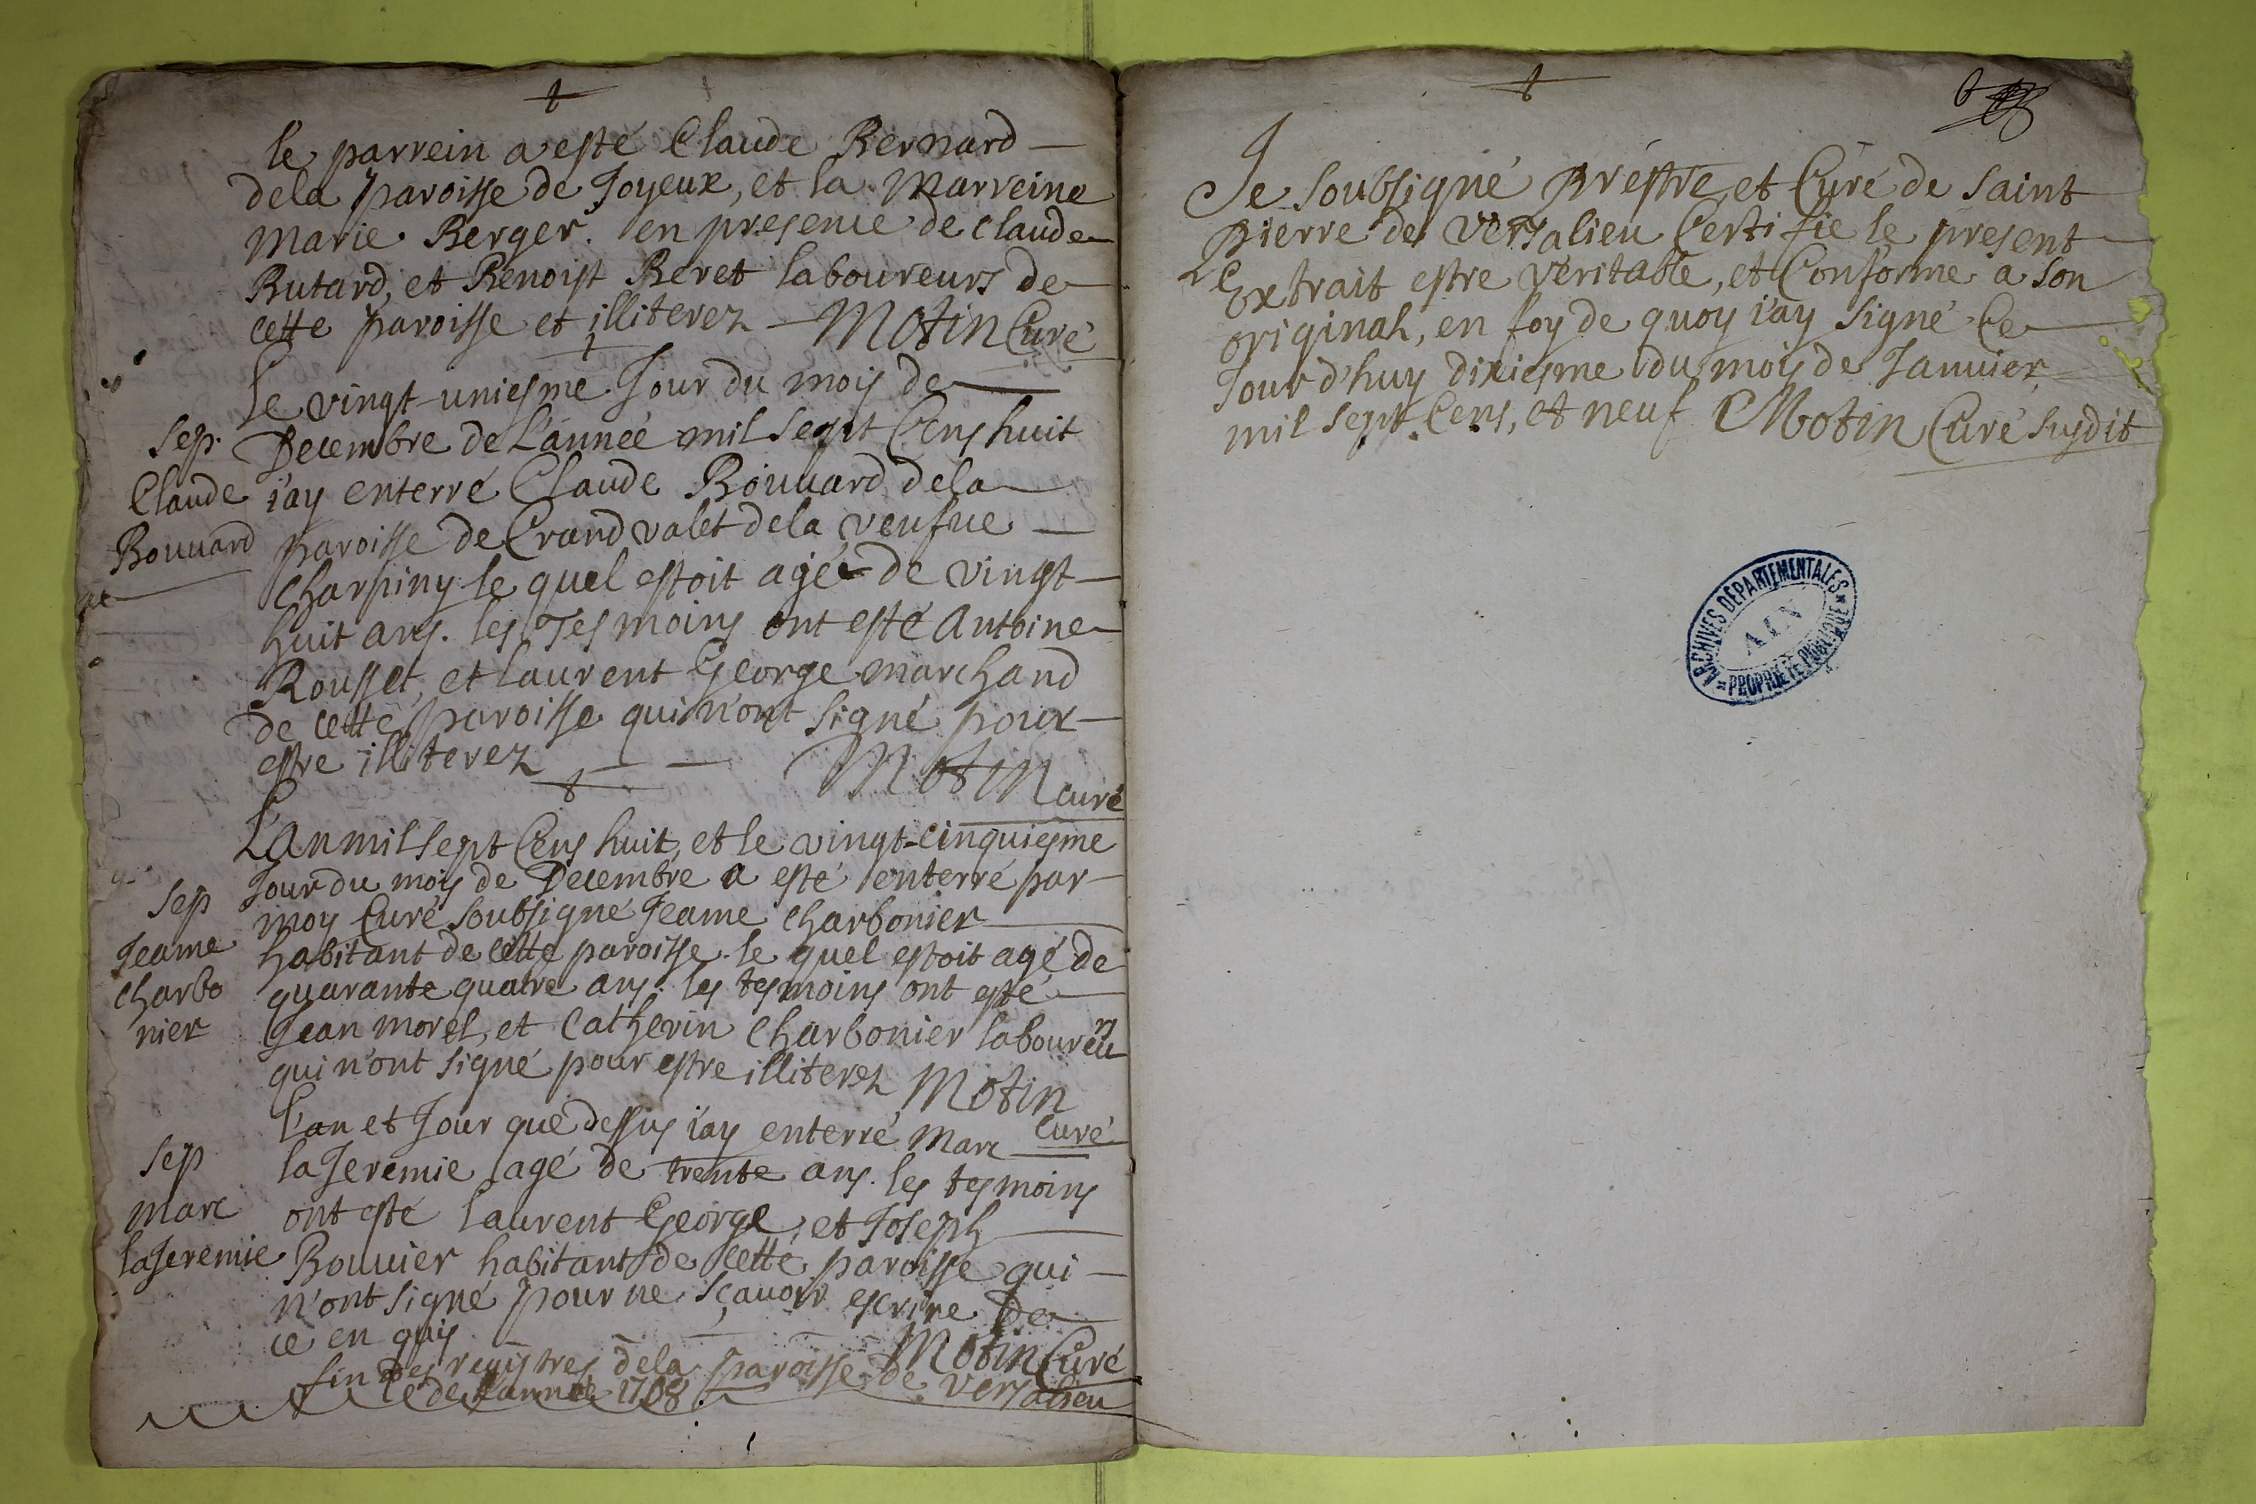 le parrein a esté Claude Bernard
dela paroisse de Joyeux, et la Marreine
Marie Berger. en presence de Claude
Rutard, et Benoist Beret laboureurs de
cette paroisse et illiterez Motin Curé
Le vingt-uniesme Jour du mois de
Decembre de L'année mil sept Cens huit
j'ay enterré Claude Bouuard dela
paroisse de Crand valet dela veufue
Charpiny le quel estoit agé de vingt
huit ans. les Tesmoins ont esté Antoine
Rousset, et laurent George marchand
de cette paroisse qui n'ont signé pour
estre illiterez
Motin curé
Sep.
Claude
Bouuard
L'an mil sept Cens huit, et le vingt-cinquiesme
Jour du mois de Decembre a esté enterré par
moy Curé soubsigné Jeame Charbonier
habitant de cette paroisse. le quel estoit agé de
quarante quatre ans. les tesmoins ont esté
Jean morel, et Catherin Charbonier laboureurs
qui n'ont signé pour estre illiterez Motin
Curé
Sep
Jeame
Charbo
nier
L'an et Jour que dessus j'ay enterré Marc
la Jeremie agé de trente ans. les tesmoins
ont esté Laurent George, et Joseph
Bouuier habitant de cette paroisse qui
n'ont signé pour ne sçauoir escrire De
ce enquis
Motin Curé
Sep
Marc
la Jeremie
fin des registres dela paroisse de Versalieu
de l'année 1708.
6
Je soubsigné Prestre et Curé de Saint
Pierre de Versalieu Certifie le present
Extrait estre veritable, et Conforme a son
original, en foy de quoy j'ay signé Ce
Jourd'huy dixiesme du mois de Januier
mil sept Cens, et neuf Motin Curé susdit
ARCHIVES DÉPARTEMENTALES
AIN
PROPRIÉTÉ PUBLIQUE